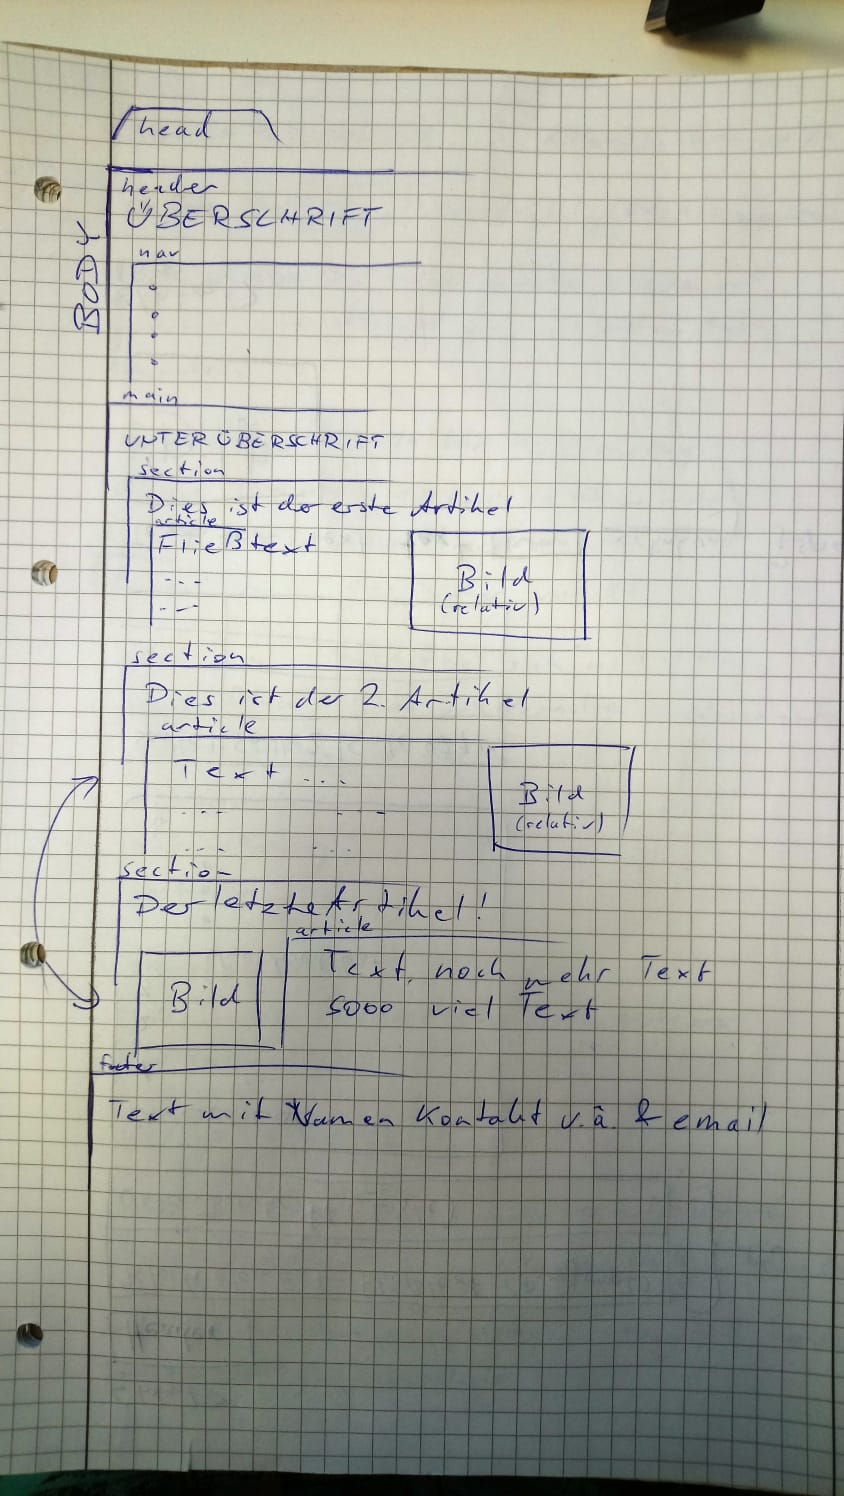 head
BODY
header
ÜBERSCHRIFT
nav
main
UNTERÜBERSCHRIFT
section
Dies ist der erste Artikel
article
Fließtext
---
---
Bild
(relativ)
section
Dies ist der 2. Artikel
article
Text ...
... ---
... ...
Bild
(relativ)
section
Der letzte Artikel!
article
Bild
Text, noch mehr Text
sooo viel Text
footer
Text mit Namen Kontakt u.ä. & email